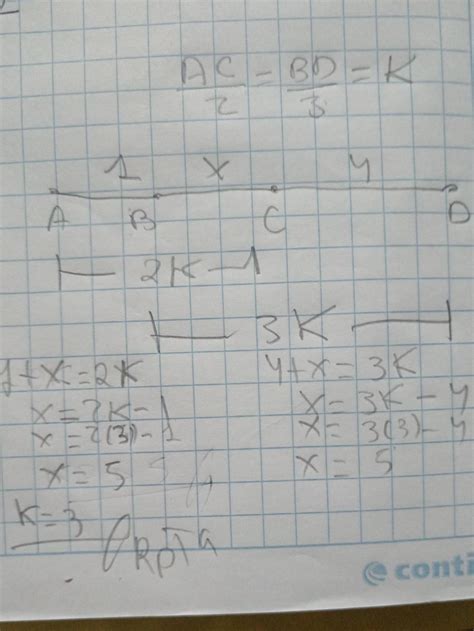 AC/2 = BD/3 = K
1 x 4
A B C D
2K
3K
1+x=2K 4+x=3K
x=2K-1 x=3K-4
x=2(3)-1 x=3(3)-4
x=5 x=5
K=3
RPTA
conti